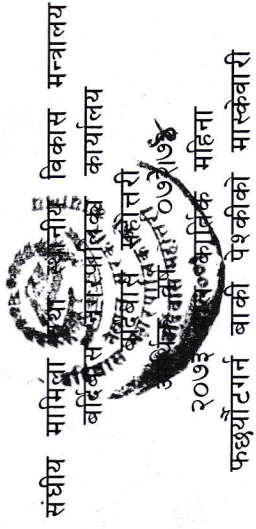 संघीय मामिला तथा स्थानीय विकास मन्त्रालय
बर्दिबास नगरपालिका कार्यालय
बर्दिबास महोत्तरी
आर्थिक वर्ष २०७३।७४
२०७३ कार्तिक महिना
फर्छ्यौटगर्न बाकी पेश्कीको मास्केवारी